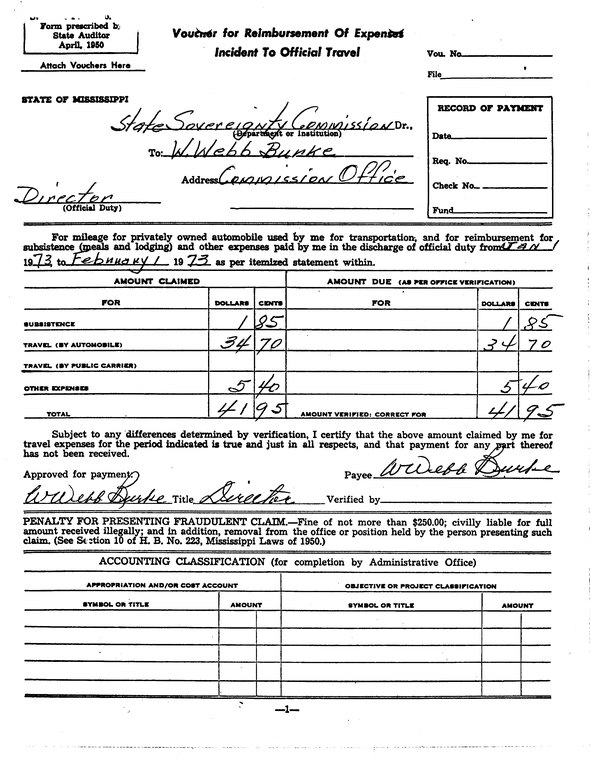 Form prescribed by
State Auditor
April, 1950
Attach Vouchers Here
Voucher for Reimbursement Of Expenses
Incident To Official Travel
Vou. No.
File
STATE OF MISSISSIPPI
State Sovereignty Commission Dr.,
(Department or Institution)
To: W. Webb Burke
Address Commission Office
Director
(Official Duty)
RECORD OF PAYMENT
Date
Req. No.
Check No.
Fund
For mileage for privately owned automobile used by me for transportation, and for reimbursement for
subsistence (meals and lodging) and other expenses paid by me in the discharge of official duty from Jan 1
1973 to February 1 1973 as per itemized statement within.
AMOUNT CLAIMED AMOUNT DUE (AS PER OFFICE VERIFICATION)
FOR DOLLARS CENTS FOR DOLLARS CENTS
SUBSISTENCE 1 85 1 85
TRAVEL (BY AUTOMOBILE) 34 70 34 70
TRAVEL (BY PUBLIC CARRIER)
OTHER EXPENSES 5 40 5 40
TOTAL 41 95 AMOUNT VERIFIED; CORRECT FOR 41 95
Subject to any differences determined by verification, I certify that the above amount claimed by me for
travel expenses for the period indicated is true and just in all respects, and that payment for any part thereof
has not been received.
Approved for payment: Payee W Webb Burke
W Webb Burke Title Director Verified by
PENALTY FOR PRESENTING FRAUDULENT CLAIM.—Fine of not more than $250.00; civilly liable for full
amount received illegally; and in addition, removal from the office or position held by the person presenting such
claim. (See Section 10 of H. B. No. 223, Mississippi Laws of 1950.)
ACCOUNTING CLASSIFICATION (for completion by Administrative Office)
APPROPRIATION AND/OR COST ACCOUNT OBJECTIVE OR PROJECT CLASSIFICATION
SYMBOL OR TITLE AMOUNT SYMBOL OR TITLE AMOUNT
—1—